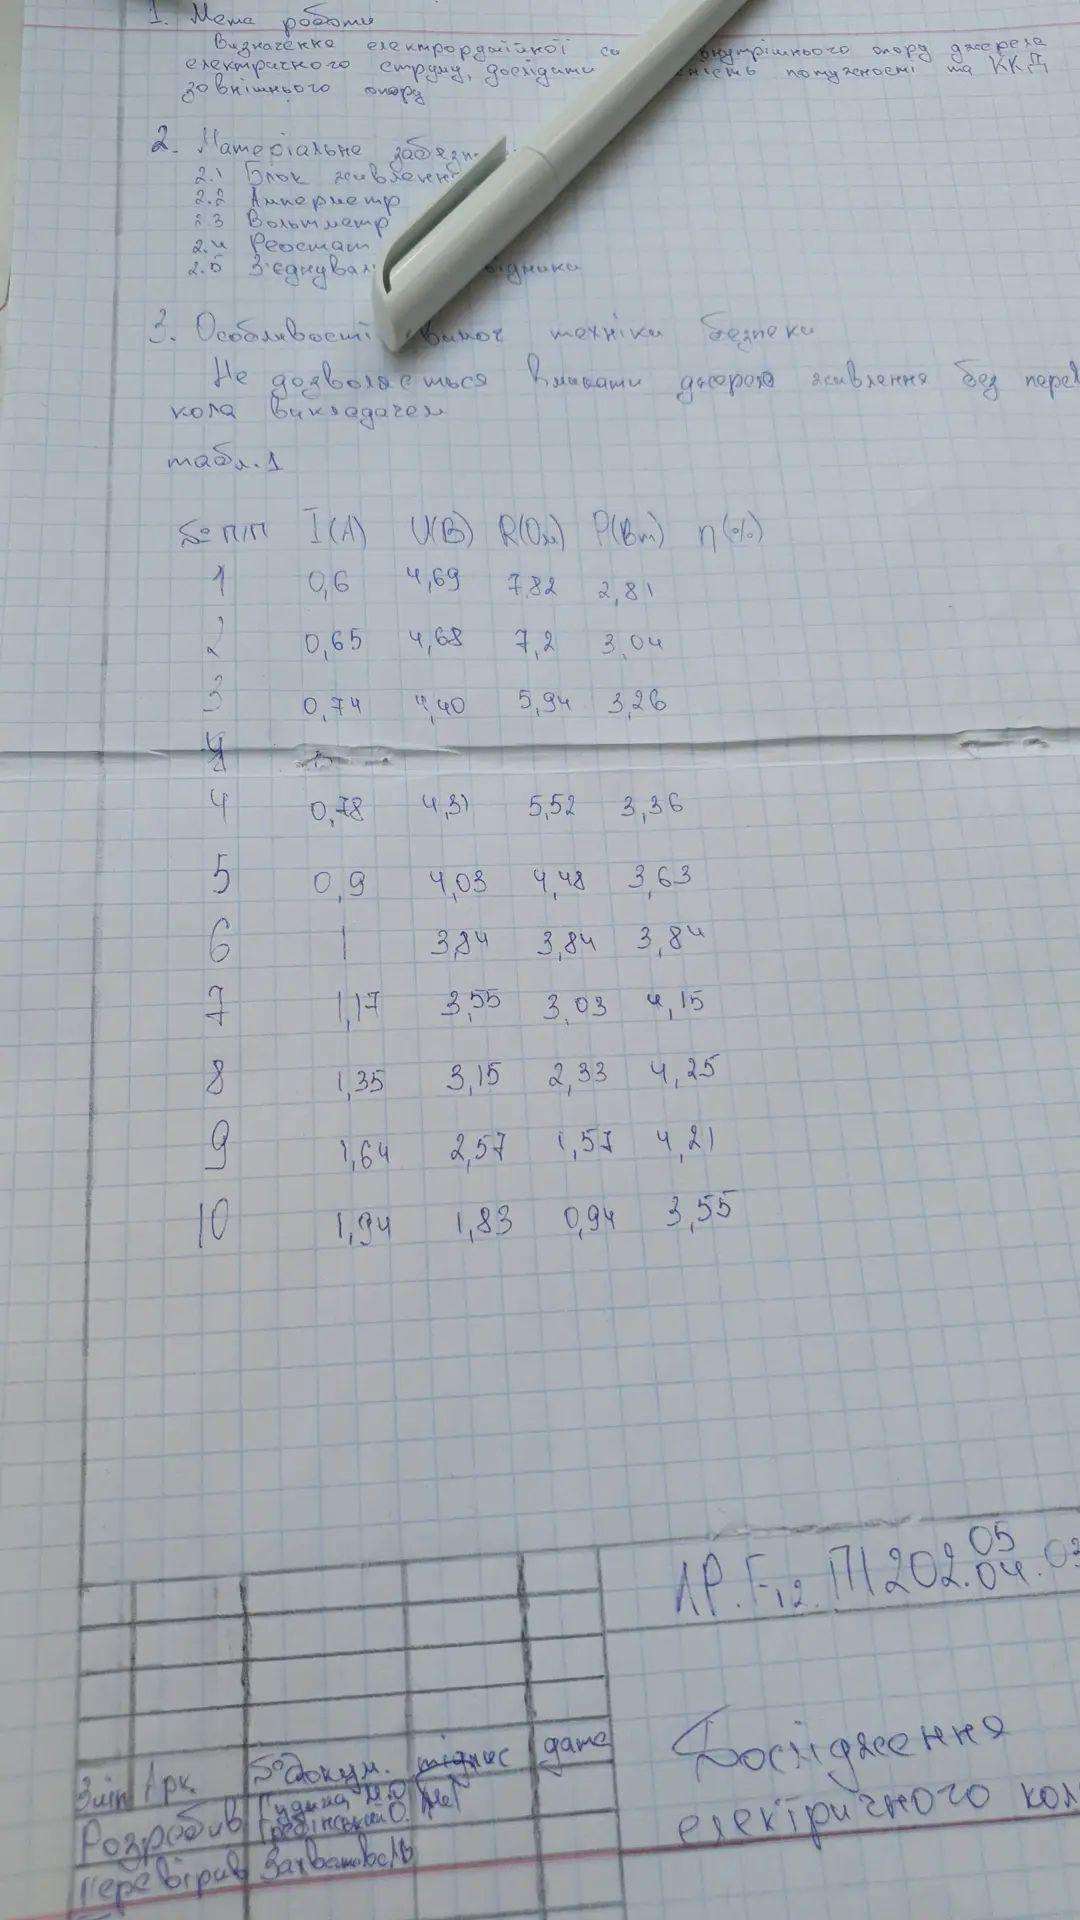 1. Мета роботи
Визначення електрорушійної си внутрішнього опору джерела
електричного струму, дослідити ність потужності та ККД
зовнішнього опору
2. Матеріальне забезп
2.1 Блок живленн
2.2 Амперметр
2.3 Вольтметр
2.4 Реостат
2.5 З'єднувал відники
3. Особливості вимог техніки безпеки
Не дозволяється вмикати джерело живлення без перев
кола викладачем
табл.1
№ п/п I(A) U(B) R(Ом) P(Вт) η(%)
1 0,6 4,69 7,82 2,81
2 0,65 4,68 7,2 3,04
3 0,74 4,40 5,94 3,26
4 0,78 4,31 5,52 3,36
5 0,9 4,03 4,48 3,63
6 1 3,84 3,84 3,84
7 1,17 3,55 3,03 4,15
8 1,35 3,15 2,33 4,25
9 1,64 2,57 1,57 4,21
10 1,94 1,83 0,94 3,55
ЛР. F12. П1202.05
04.03
Дослідження
електричного кол
Змін Арк. № докум. підпис дата
Розробив
Перевірив